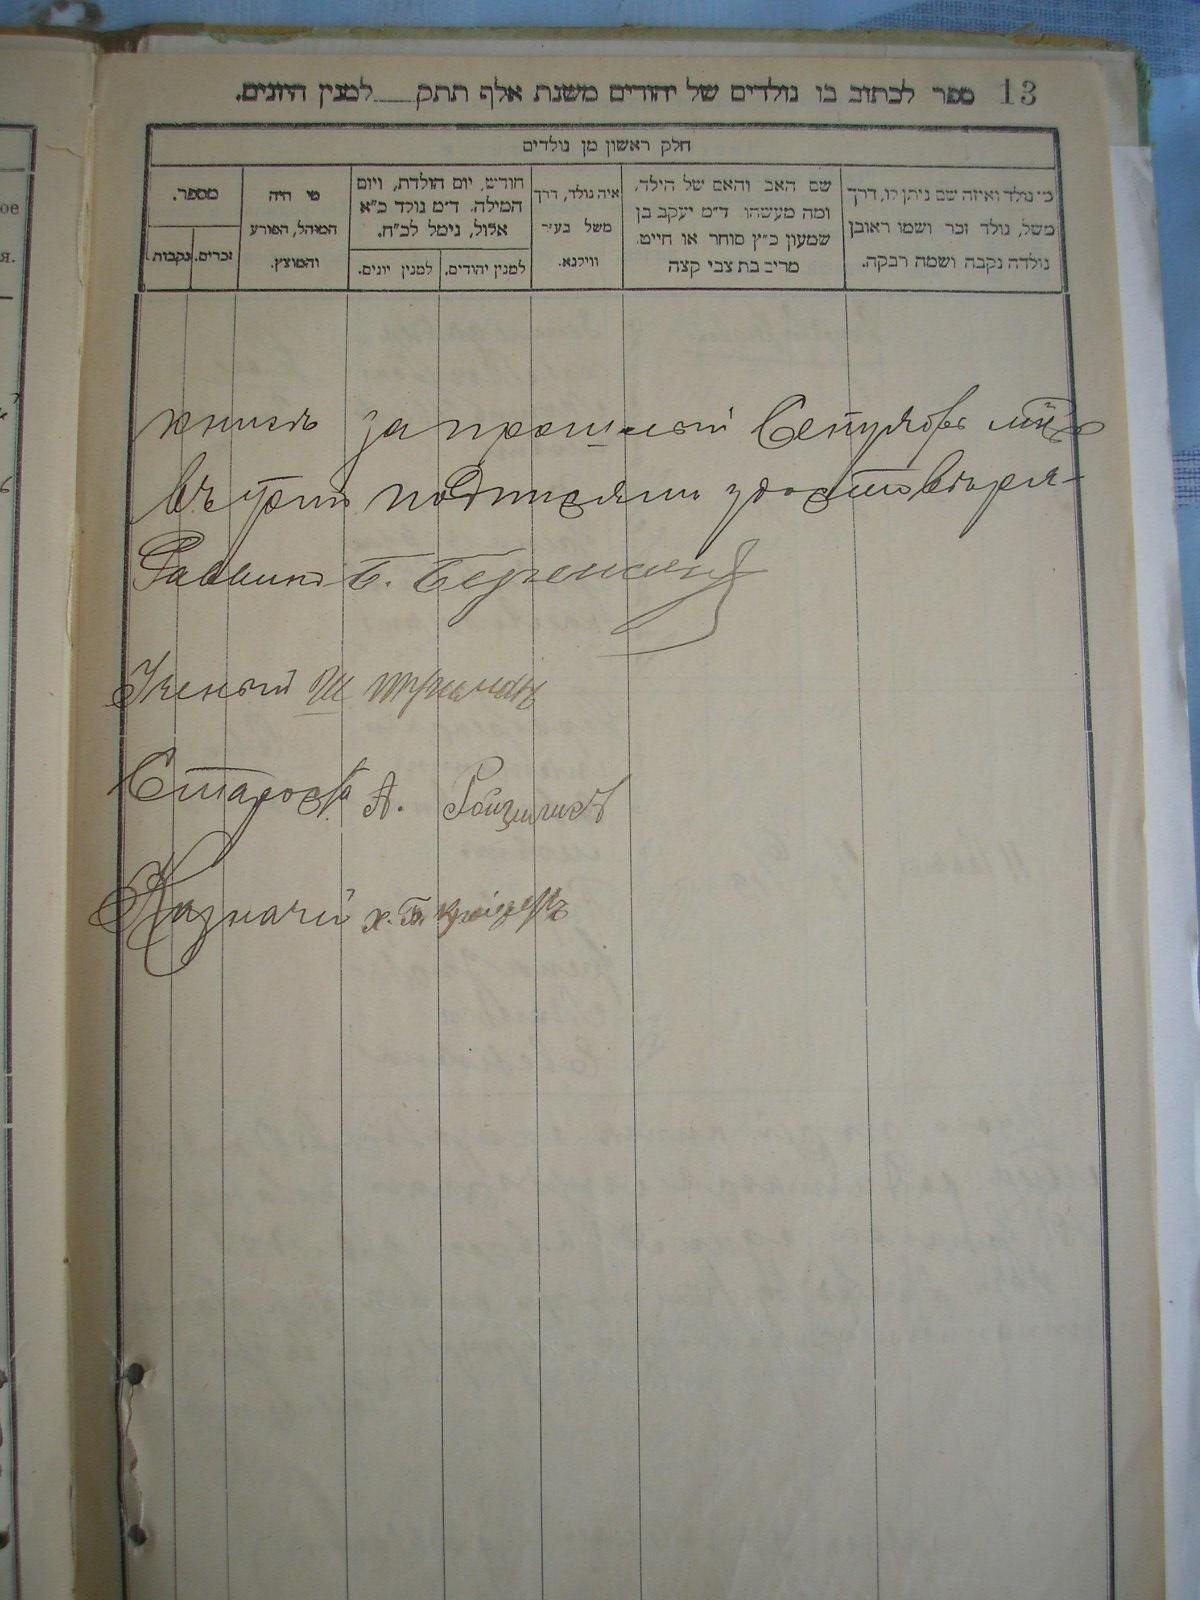 13 ספר לכתוב בו נולדים של יהודים משנת אלף תתק___למנין היונים.
חלק ראשון מן נולדים
מי נולד ואיזה שם ניתן לו, דרך
משל, נולד זכר ושמו ראובן
נולדה נקבה ושמה רבקה.
שם האב והאם של הילד,
ומה מעשהו ד״מ יעקב בן
שמעון כ״ץ סוחר או חייט,
מרים בת צבי קצה
איה נולד, דרך
משל בעיר
ווילנא.
חודש, יום הולדת, ויום
המילה, ד״מ נולד כ״א
אלול, נימל לכ״ח.
למנין יהודים.
למנין יונים.
מי היה
המוהל, הפורע
והמוצץ.
מספר.
זכרים.
נקבות.
ное
я.
книгъ за прошлый Сентябрь мѣс
вѣрти подписями удостовѣря-
Раввинъ Б.
Ученый Ш
Староста А.
Казначей Х.